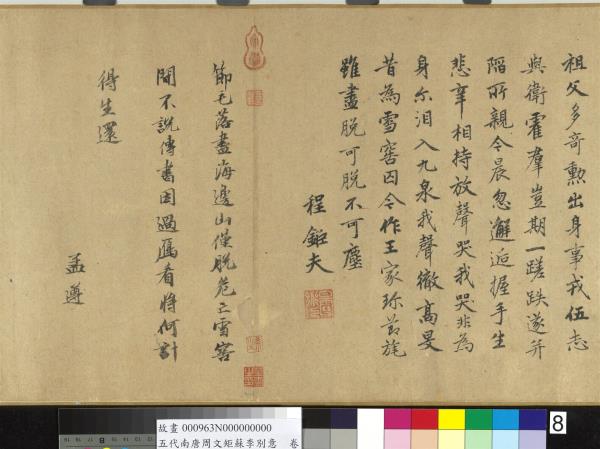 祖父多奇勲出身事戎伍志
與衛霍羣豈期一蹉跌遂弃
陷所親今晨忽邂逅握手生
悲辛相持放聲哭我哭非為
身尓泪入九泉我聲徹髙旻
昔為雪窖囚今作王家珎莭旄
雖盡脱可脱不可塵
程鉅夫
節毛落盡海邊山僅脱危亡雪窖
間不説傳書因過鴈看將何計
得生還
孟遵
8
故畫 000963N000000000
五代南唐周文矩蘇李別意 卷